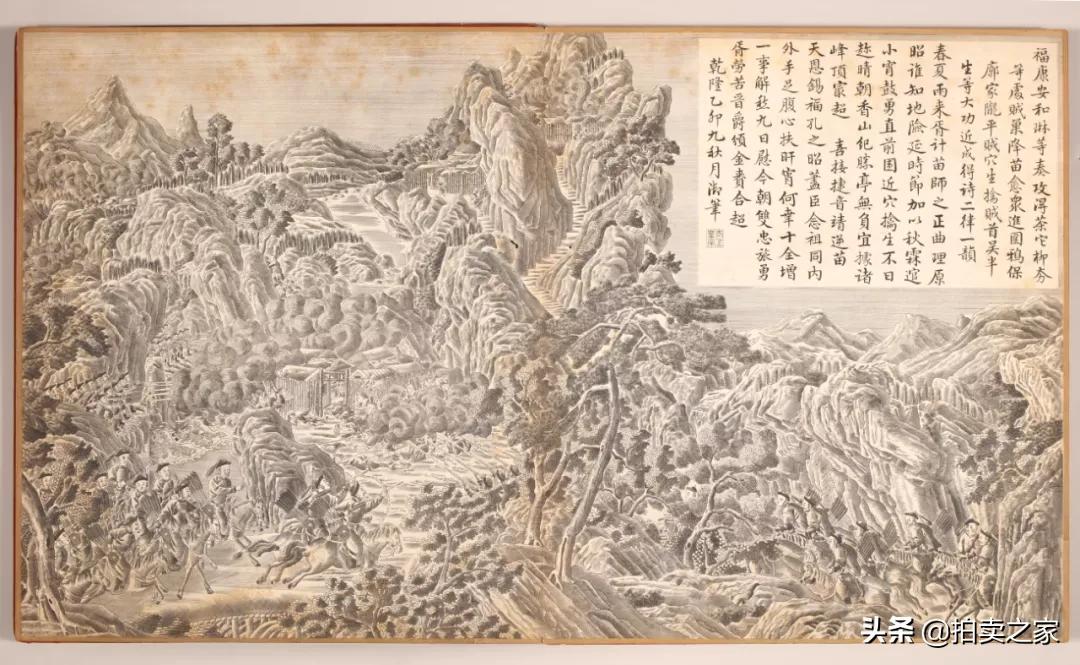 福康安和琳等奏攻得茶它柳夯
等處賊巢降苗愈衆進圍鴉保
廓家隴平賊穴生擒賊首吳半
生等大功近成得詩二律一韻
春夏雨来胥計苗師之正曲理原
昭誰知地險延時節加以秋霖逗
小宵鼓勇直前圍近穴擒生不日
趂晴朝香山亭無負宜據諸
峰頂寰超 喜接捷音靖逆苗
天恩錫福孔之昭藎臣念祖同内
外手足腹心扶旰宵何幸十全增
一事解愁九日慰今朝雙忠旅勇
胥勞苦晉爵傾金賚合超
乾隆乙卯九秋月御筆
头条 @拍卖之家